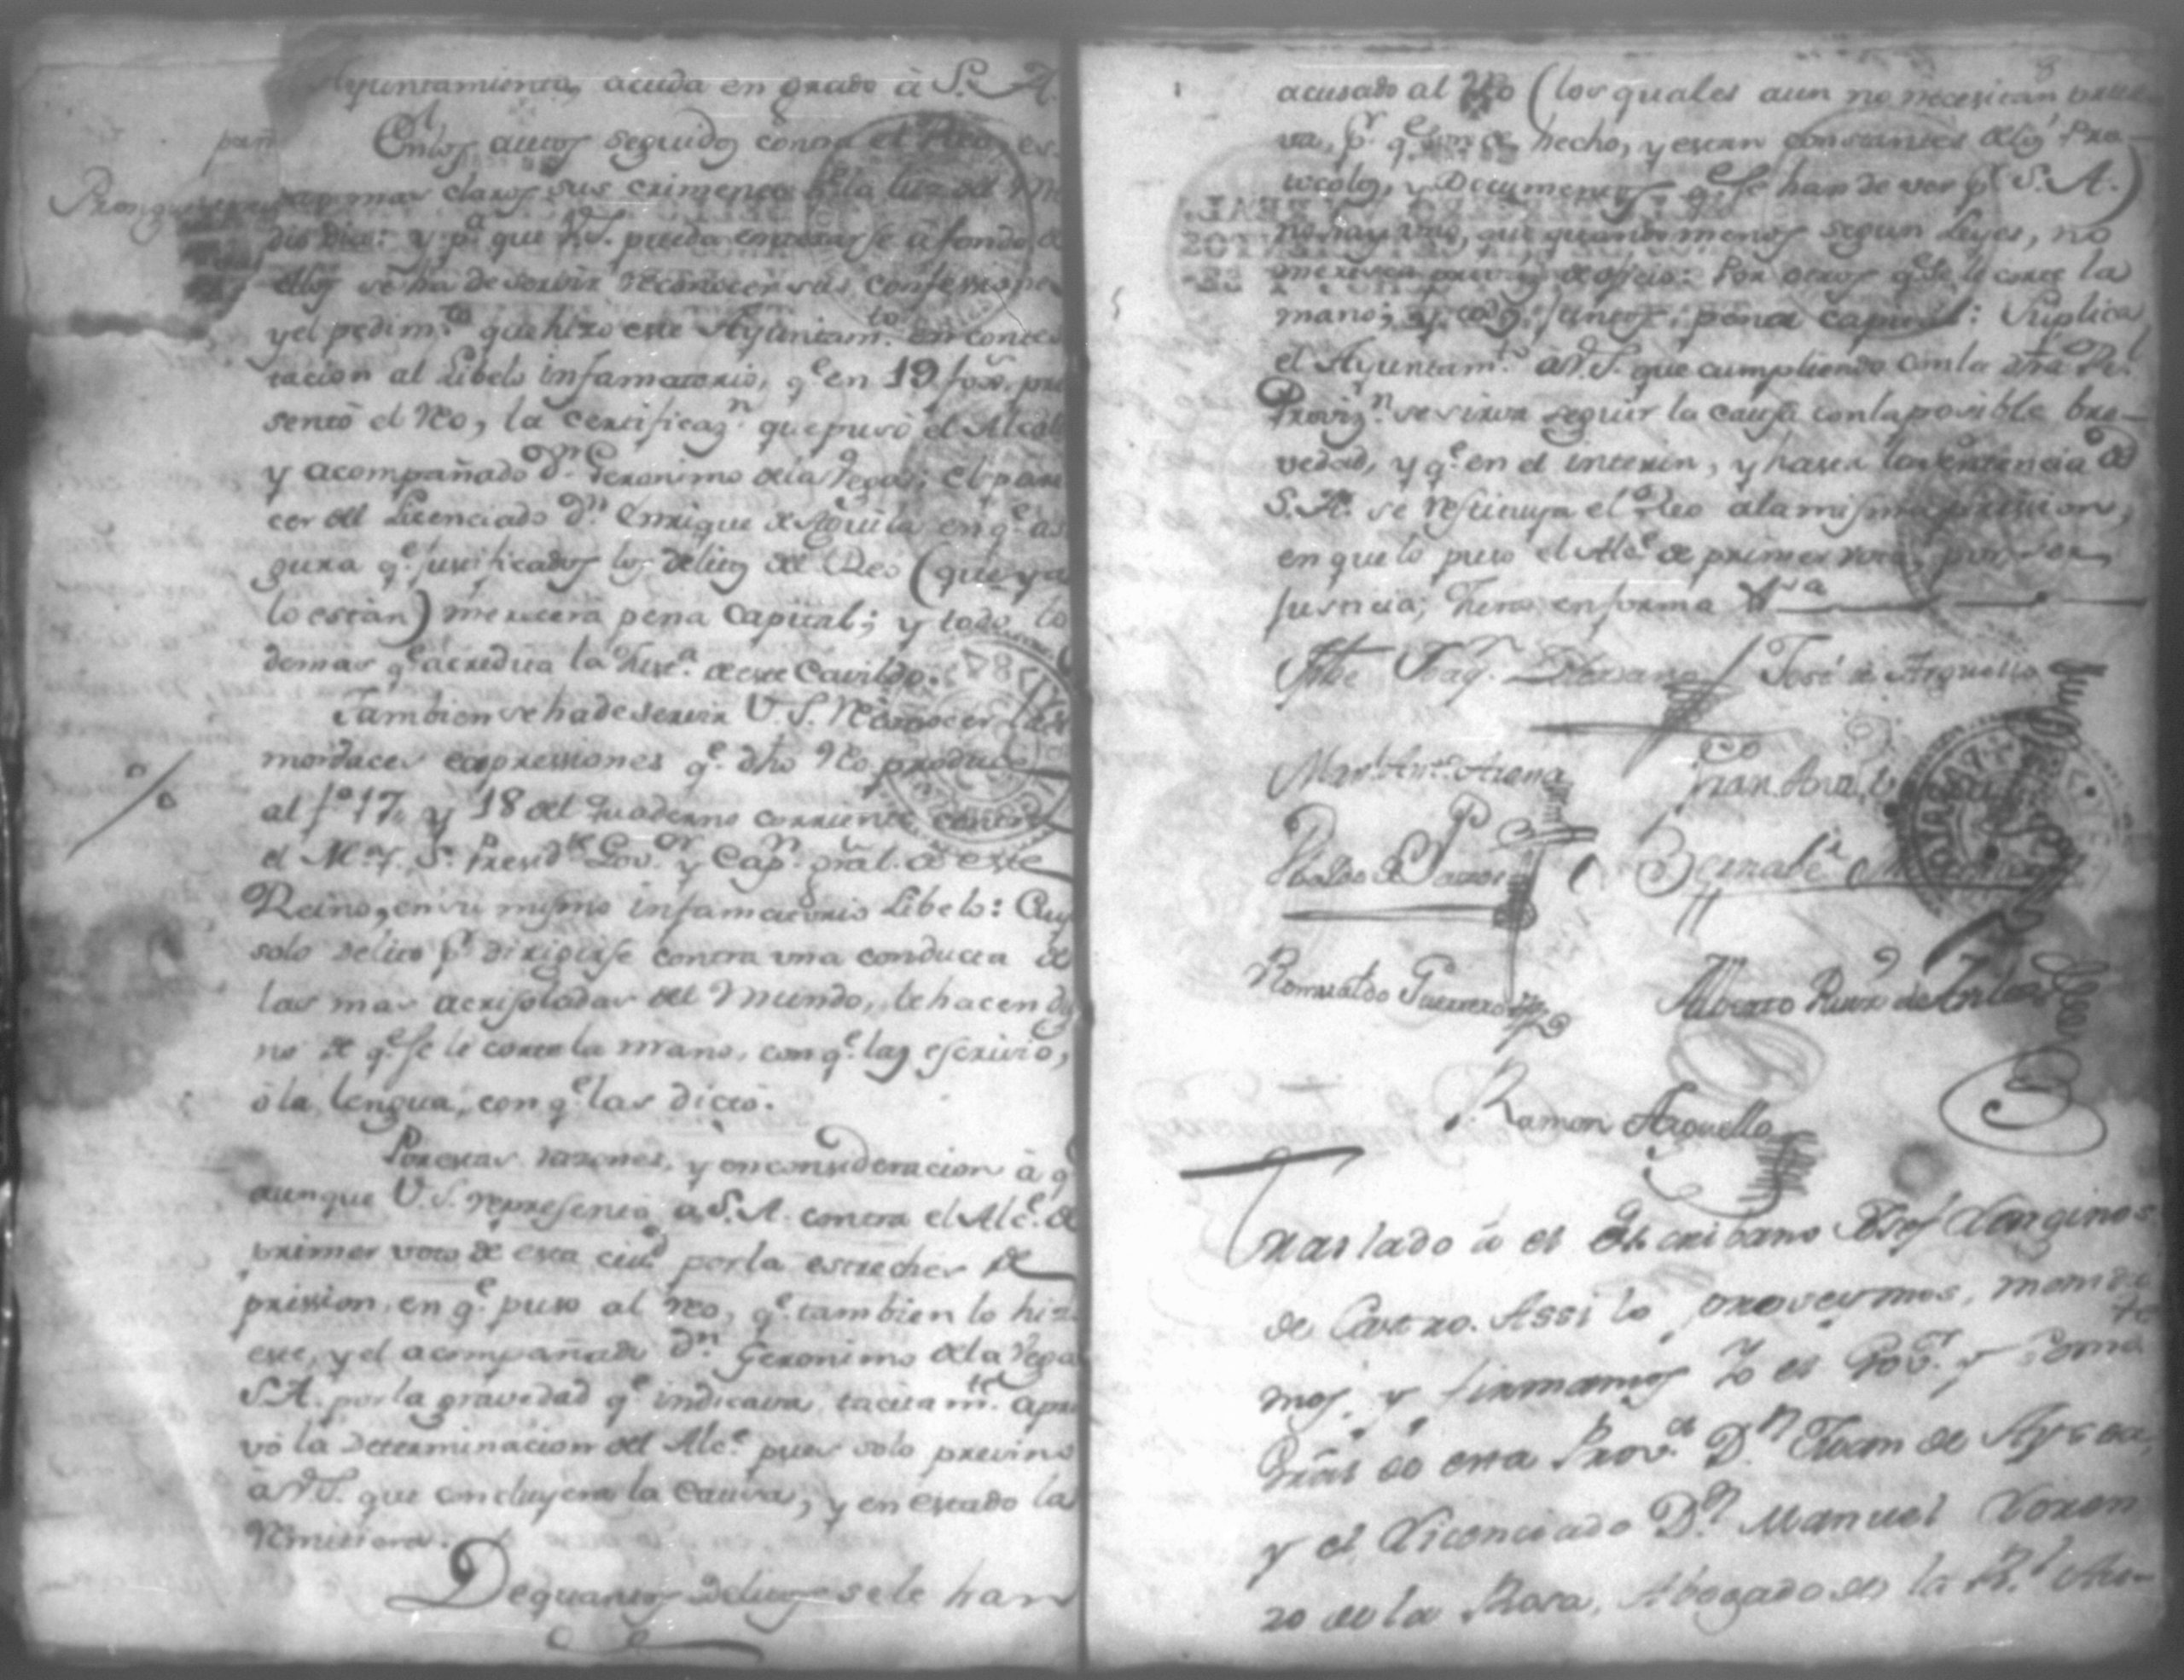 Ayuntamiento, acuda en grado à S. A.
En los autos seguidos contra el Reo, es-
mas claros sus crimenes qe la luz del me
dio dia: y pa. que V.S. pueda enterarse à fondo de
ellos se ha de servir reconocer sus confessiones
y el pedimto. que hizo este Ayuntamto. en contes
tacion al Libelo infamatorio, qe. en 19 foxs. pre
sentò el Reo, la certificazn. que puso el Alcalde
y acompañado dn. Geronimo de la Vega; el pare
cer del Licenciado Dn. Enrique de Aguila en qe. as
gura qe. justificados los delitos del Reo (que ya
lo están) merecerà pena Capital; y todo lo
demas qe. acredita la de este Cavildo.
Tambien se ha de servir V.S. reconocer las
mordaces expressiones qe. dho Reo produce
al fo. 17, y 18 del quaderno corriente contra
el M. Y. S. Presidte. Govor. y Capn. gral. de este
Reino, en su mismo infamatorio Libelo: Cuyo
solo delito pr. dirigirse contra una conducta de
las mas acrisoladas del Mundo, le hacen dig
no de qe. se le corte la mano, con qe. las escrivio,
ò la lengua, con qe. las dictò.
Por estas razones, y en consideracion à qe
aunque V.S. representò a S.A. contra el Alce. de
primer voto de esta ciud. por la estrechez de
prission, en qe. puso al Reo, qe. tambien lo hizo
este, y el acompañado Dn. Geronimo de la Vega
S.A. por la gravedad qe. indicava, tacitamte. apro
vò la determinacion del Alce. pues solo previno
à V.S. que concluyera la Causa, y en estado la
remitiera.
De quantos delitos se le han
8
acusado al Reo (los quales aun no necesitan prue
va, pr. qe. son de hecho, y estan constantes de los Pro-
tocolos, y Documentos qe. se han de ver pr. S.A.)
no hay uno, que quando menos segun Leyes, no
meresca privazn. de oficio: Por otros qe. se le corte la
mano; y todos juntos, pena capital: Suplica
el Ayuntamto. à V.S. que cumpliendo con la dha Rl.
Provizn. se sirva seguir la causa con la posible bre-
vedad, y qe. en el interin, y hasta la sentencia de
S.A. se restituya el Reo a la misma prision,
en que lo puso el Alce. de primer voto, por ser
Justicia;
José de Arguello
Bernabé
Romualdo Guerrero
Ramon Arguello
Traslado à el Escribano Josef Longinos
de Castro. Assi lo proveymos, manda
mos, y firmamos Yo el Govr. y Comte.
Gral de esta Prova. Dn. Juan de Aysa,
y el Licenciado Dn. Manuel Loren
zo de la Rosa, Abogado de la Rl. Au-